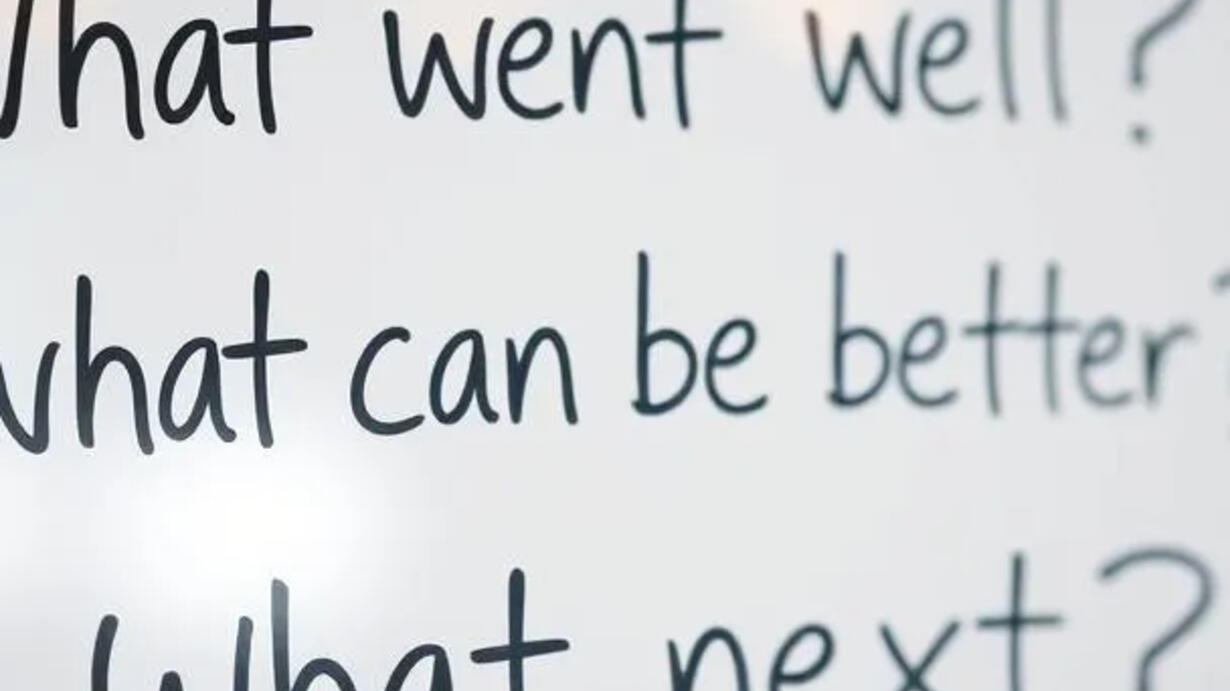 What went well?
what can be better?
What next?